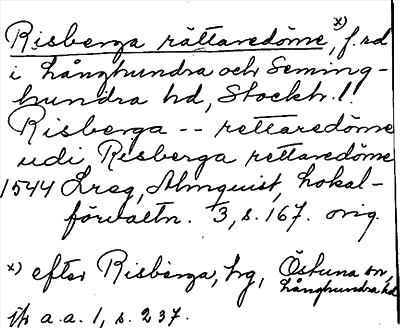 Risberga rättaredöme, x) f.rd
i Långhundra och Seming-
hundra hd, Stockh. l.
Risberga -- rettaredöme
udi, Risberga rettaredöme
1544 Lreg, Almquist, Lokal-
förvaltn. 3, s. 167. orig.
x) efter Risberga, hg, Östuna sn,
Långhundra hd
jfr a.a. 1, s. 237.